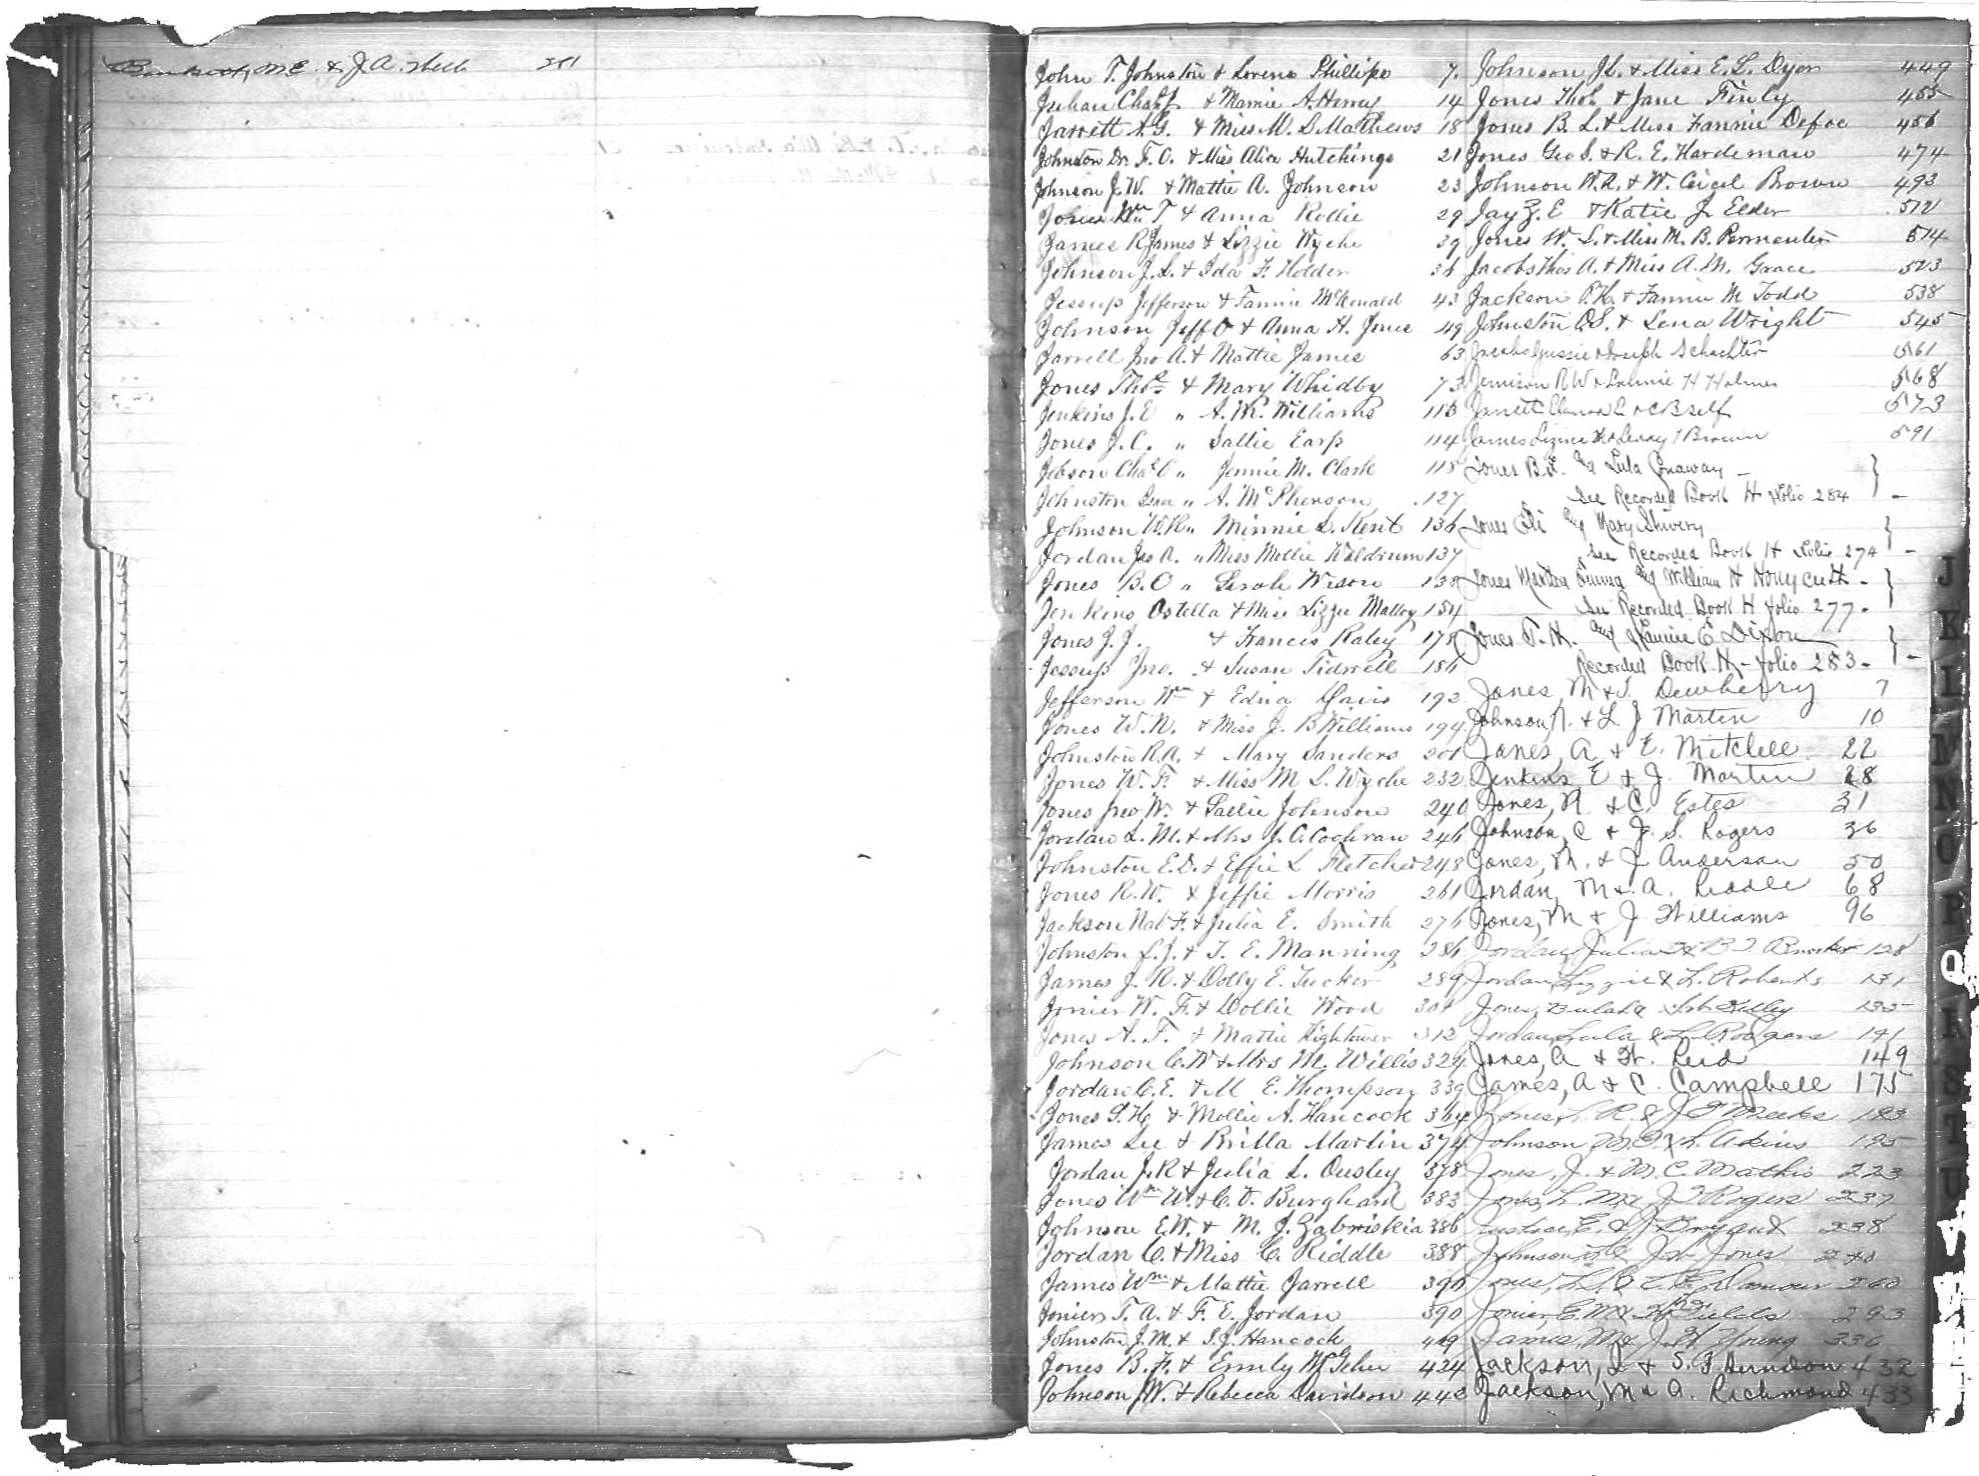 & J. A. Webb 281
John T. Johnston & Lorena Phillips 7.
Julian Chas. J. & Mamie A. Henry 14
Jarrett A. G. & Miss M. L. Mathews 18
Johnston Dr. F. O. & Miss Alice Hutchings 21
Johnson J. W. & Mattie A. Johnson 23
Wm T. & Anna Rollie 29
James R. James & Lizzie Wyche 39
Johnson J. L. & Ida F. Holder 36
Jessup Jefferson & Fannie McDonald 43
Johnson Jeff D & Anna H. Jones 49
Jarrell Jno A. & Mattie James 63
Jones Thos & Mary Whidby 73
Jenkins J. E " A. M. Williams 113
Jones J. C. " Sallie Earp 114
Jobson Chas O " Jennie M. Clark 115
Johnston " A. McPherson 127
Johnson W. R. " Minnie L. Kent 136
Jordan Jas A. " Miss Mollie Waldrum 137
Jones B. O " Sarah Wison 138
Jenkins Ostella & Miss Lizzie Malloy 154
Jones J. J. & Frances Raley 178
Jessup Jno. & Susan Tidwell 186
Jefferson Wm & Edna Davis 192
Jones W. N. & Miss J. B Williams 194
Johnston R. A. & Mary Sanders 201
Jones W. F. & Miss M L. Wyche 232
Jones Geo W. & Sallie Johnson 240
Jordan L. M. & Mrs J. C. Cochran 246
Johnston E. D. & Effie L Fletcher 248
Jones R. W. & Jeffie Morris 261
Jackson Nat F. & Julia E. Smith 276
Johnston L. J. & T. E. Manning 286
James J. R. & Dolly E. Tucker 289
Joiner W. F. & Dollie Wood 301
Jones A. T. & Mattie Hightower 312
Johnson C. W & Mrs M. Willis 324
Jordan C. E. & M E. Thompson 339
Jones T. H. & Mollie A. Hancock 364
James Lee & Brilla Martin 374
Jordan J. R & Julia L. Ousley 378
Jones Wm W. & C. V. Burghard 383
Johnson E. W. & M. J. Zabriskia 386
Jordan C. & Miss C. Riddle 388
James Wm & Mattie Jarrell 390
Joiner T. A. & F. E. Jordan 390
Johnston J. M. & S. J. Hancock 419
Jones B. F. & Emily McGehee 424
Johnson J W. & Rebecca Davidson 443
Johnson J L. & Miss E. L. Dyer 449
Jones Thos. & Jane Finly 455
Jones B. L. & Miss Fannie Defoe 456
Jones Geo S. & R. E. Hardeman 474
Johnson W. A. & W. Cecil Brown 493
Jay Z. E & Katie J. Elder 512
Jones W. L. & Miss M. B. Permenter 514
Jacobs Thos A. & Miss A. M. Grace 523
Jackson P. H. & Fannie M Todd 538
Johnston O. S. & Lena Wright 545
Jacobs Gussie & Joseph Schachter 561
Jemison R W & Lannie H Holmes 568
Jarrett Eleanor C & C B Self 573
James & Leroy T Brown 591
Jones B. F. and Lula Conaway -
See Recorded Book H folio 284 -
Jones Eli and Mary Shivery
See Recorded Book H folio 274 -
Jones Martha Emma and William H Honycutt -
See Recorded Book H folio 277 -
Jones T. H. and Fannie E Dixon
Recorded Book H - folio 283 -
Jones, M & T. Dewberry 7
Johnson, A. & L J Martin 10
Jones, A & E. Mitchell 22
Jenkins, E & J. Martin 28
Jones, A. & C. Estes 31
Johnson, C & J. S. Rogers 36
Jones, M. & J Anderson 50
Jordan, M & A. Riddle 68
Jones, M & J Williams 96
Jordan, Julia H & B T Brooker 128
Jordan Lizzie & L. Roberts 131
Jones, Beulah & Kelley 135
Jordan, Lula & L Rodgers 141
Jones, A & W. Reid 149
James, A & C. Campbell 175
Jones, L. R. & J T Meeks 183
Johnson M. & L. Akins 195
Jones, J. & M. C. Mathis 223
Jones, L. M & J Rogers 237
C. & J Bryant 238
Johnson, & Jones 240
Jones, L. & 260
Joiner, E. M & Fields 293
James, M & J. W Young 336
Jackson, L & S. J Herndon 432
Jackson, M & A. Richmond 433
J
K
L
M
N
O
P
Q
R
S
T
U
V